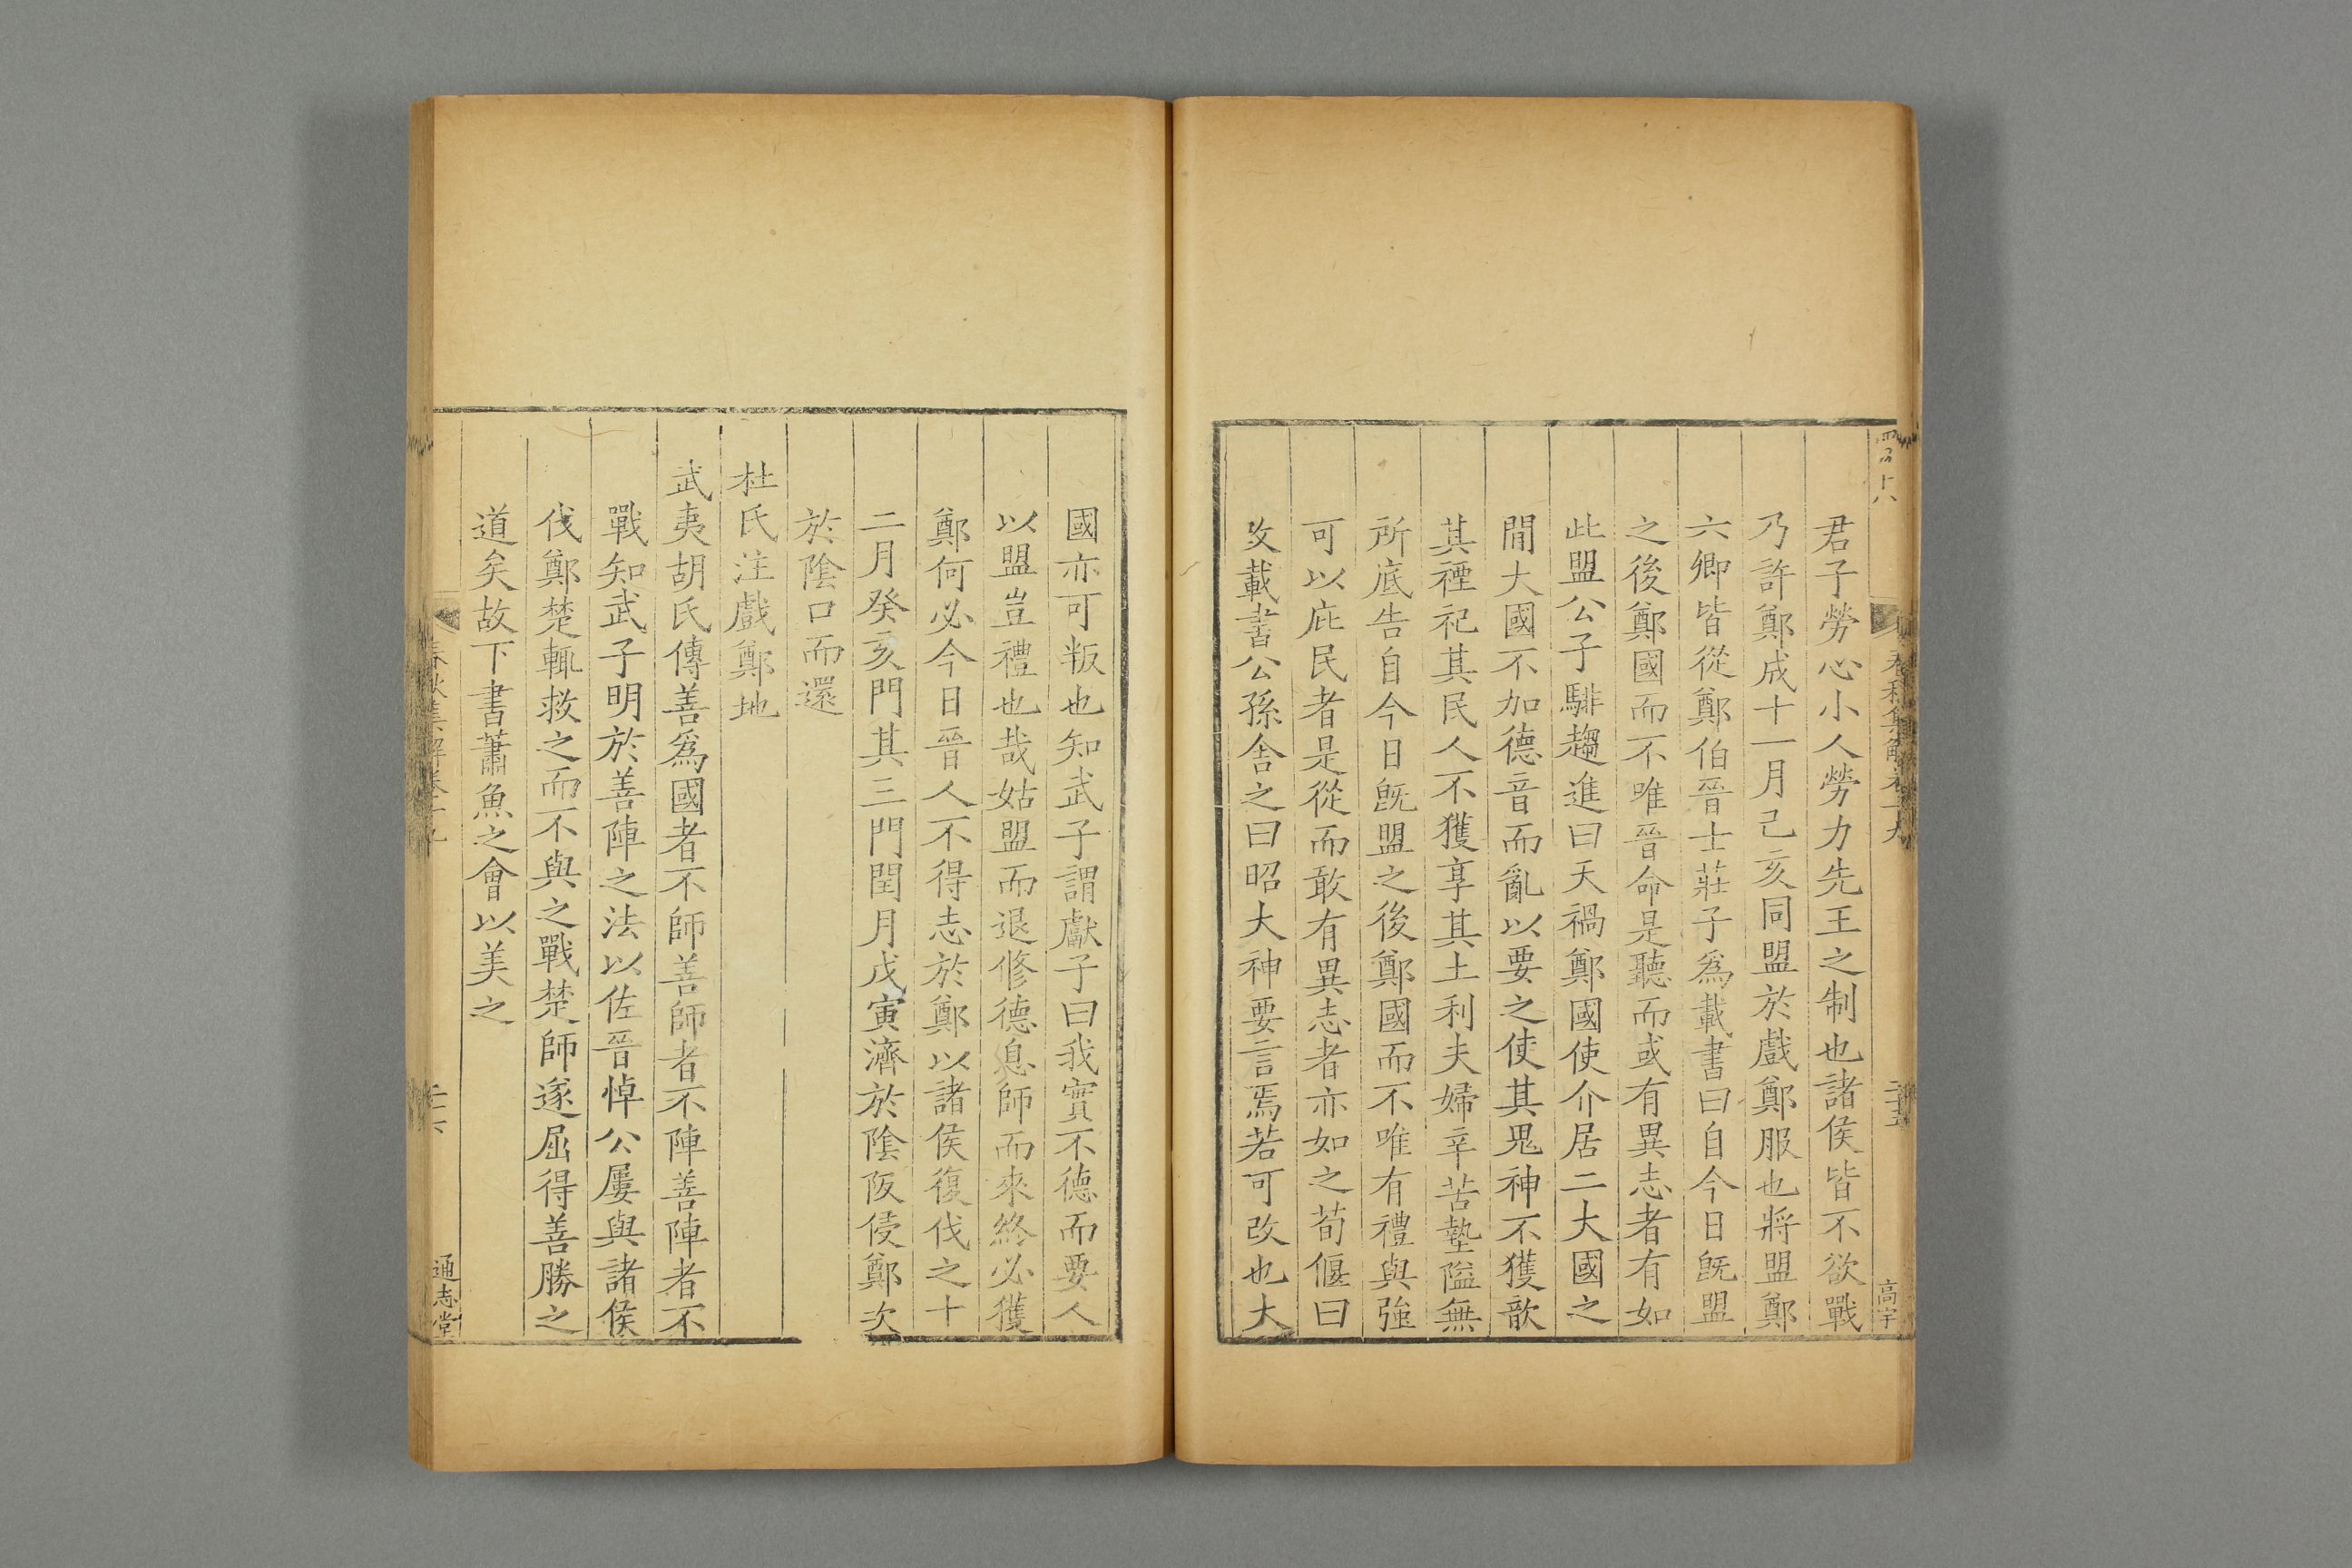 君子勞心小人勞力先王之制也諸侯皆不欲戰
乃許鄭成十一月己亥同盟於戲鄭服也將盟鄭
六卿皆從鄭伯晉士莊子爲載書曰自今日旣盟
之後鄭國而不唯晉命是聽而或有異志者有如
此盟公子騑趨進曰天禍鄭國使介居二大國之
間大國不加德音而亂以要之使其鬼神不獲歆
其禋祀其民人不獲享其土利夫婦辛苦墊隘無
所底告自今日旣盟之後鄭國而不唯有禮與強
可以庇民者是從而敢有異志者亦如之荀偃曰
攺載書公孫舍之曰昭大神要言焉若可改也大
國亦可叛也知武子謂獻子曰我實不德而要人
以盟豈禮也哉姑盟而退修德息師而來終必獲
鄭何必今日晉人不得志於鄭以諸侯復伐之十
二月癸亥門其三門閏月戊寅濟於隂阪侵鄭次
於隂口而還
杜氏注戲鄭地
武夷胡氏傳善爲國者不師善師者不陣善陣者不
戰知武子明於善陣之法以佐晉悼公屢與諸侯
伐鄭楚輒救之而不與之戰楚師遂屈得善勝之
道矣故下書蕭魚之會以美之
春秋集解卷十九
二十五
高宇
二十六
通志堂